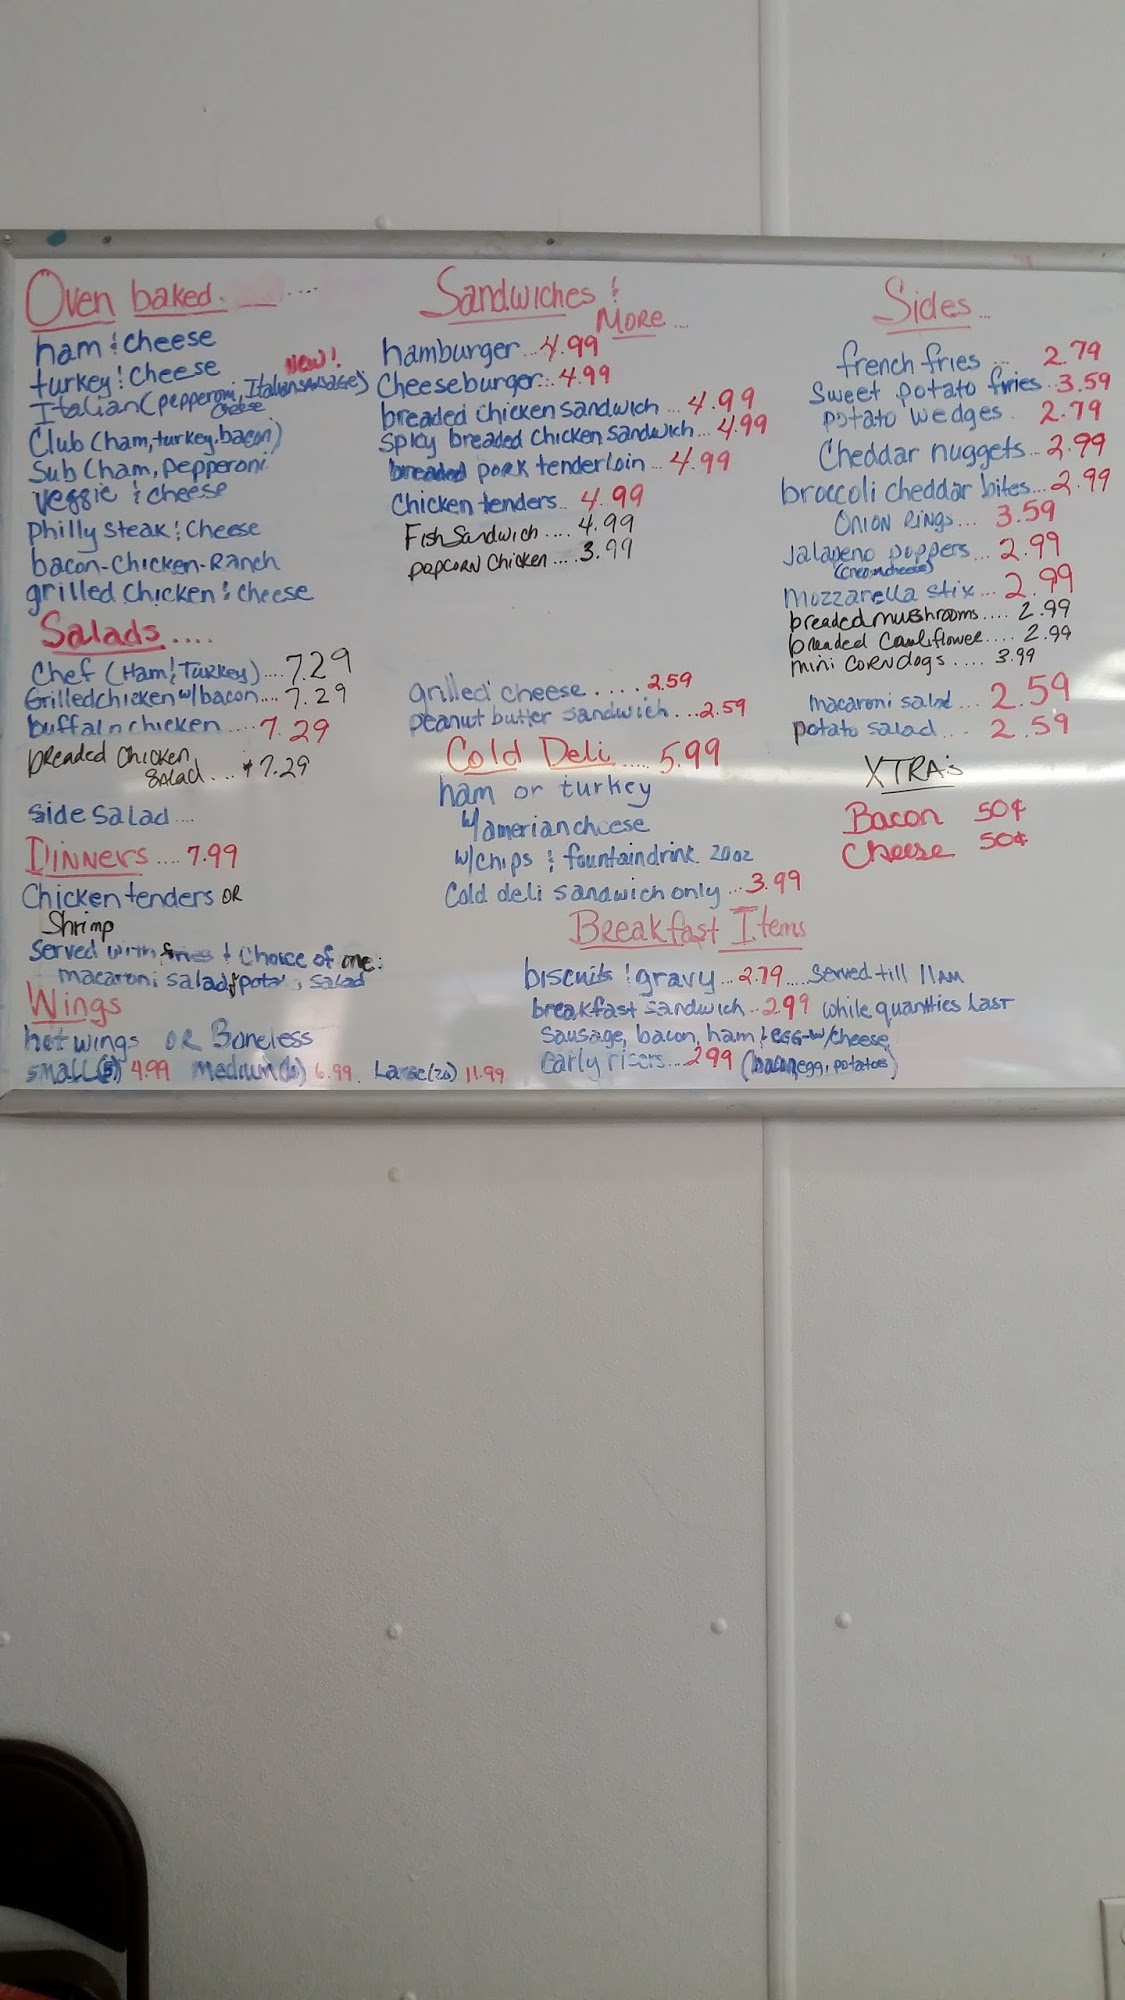 Oven baked. ....
ham & cheese
turkey & cheese
NEW!
Italian (pepperoni, Italian sausage)
cheese
Club (ham, turkey, bacon)
Sub (ham, pepperoni
veggie & cheese
philly steak & cheese
bacon-chicken-Ranch
grilled chicken & cheese
Salads ....
Chef (Ham & Turkey) .... 7.29
Grilled chicken w/ bacon.... 7.29
buffalo chicken .... 7.29
breaded Chicken
Salad.... 7.29
side salad ....
Dinners .... 7.99
Chicken tenders OR
Shrimp
served with fries & choice of one:
macaroni salad, potato salad
Wings
hot wings OR Boneless
small(5) 4.99 medium(10) 6.99. Large(20) 11.99
Sandwiches &
More ....
hamburger... 4.99
Cheeseburger... 4.99
breaded chicken sandwich ... 4.99
spicy breaded chicken sandwich... 4.99
breaded pork tenderloin ... 4.99
Chicken tenders... 4.99
Fish Sandwich .... 4.99
popcorn Chicken .... 3.99
grilled cheese ..... 2.59
peanut butter sandwich....2.59
Cold Deli ..... 5.99
ham or turkey
w/ amerian cheese
w/ chips & fountain drink 20oz
Cold deli sandwich only ... 3.99
Sides ...
french fries ... 2.79
Sweet potato fries.. 3.59
potato wedges . 2.79
Cheddar nuggets... 2.99
broccoli cheddar bites... 2.99
Onion Rings... 3.59
Jalapeno poppers... 2.99
(creamcheese)
Mozzarella stix... 2.99
breaded mushrooms.... 2.99
breaded Cauliflower.... 2.99
mini corndogs ..... 3.99
macaroni salad ... 2.59
potato salad... 2.59
XTRA's
Bacon 50¢
Cheese 50¢
Breakfast Items
biscuits & gravy ... 2.79 .... served till 11am
breakfast sandwich .. 2.99 while quantities last
sausage, bacon, ham & egg w/ cheese
early risers.... 2.99 (bacon, egg, potatoes)